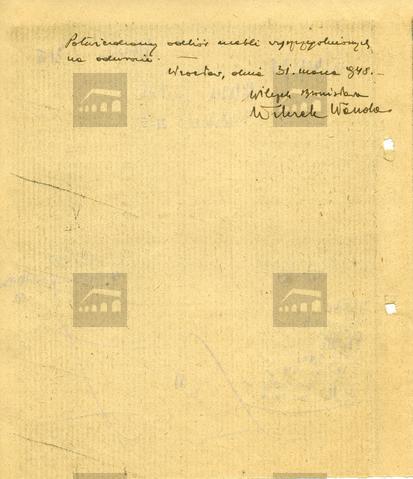 Potwierdzamy odbiór mebli wyszczególnionych
na odwrocie.
Wrocław, dnia 31. marca 948. –
Bronisława
Wanda